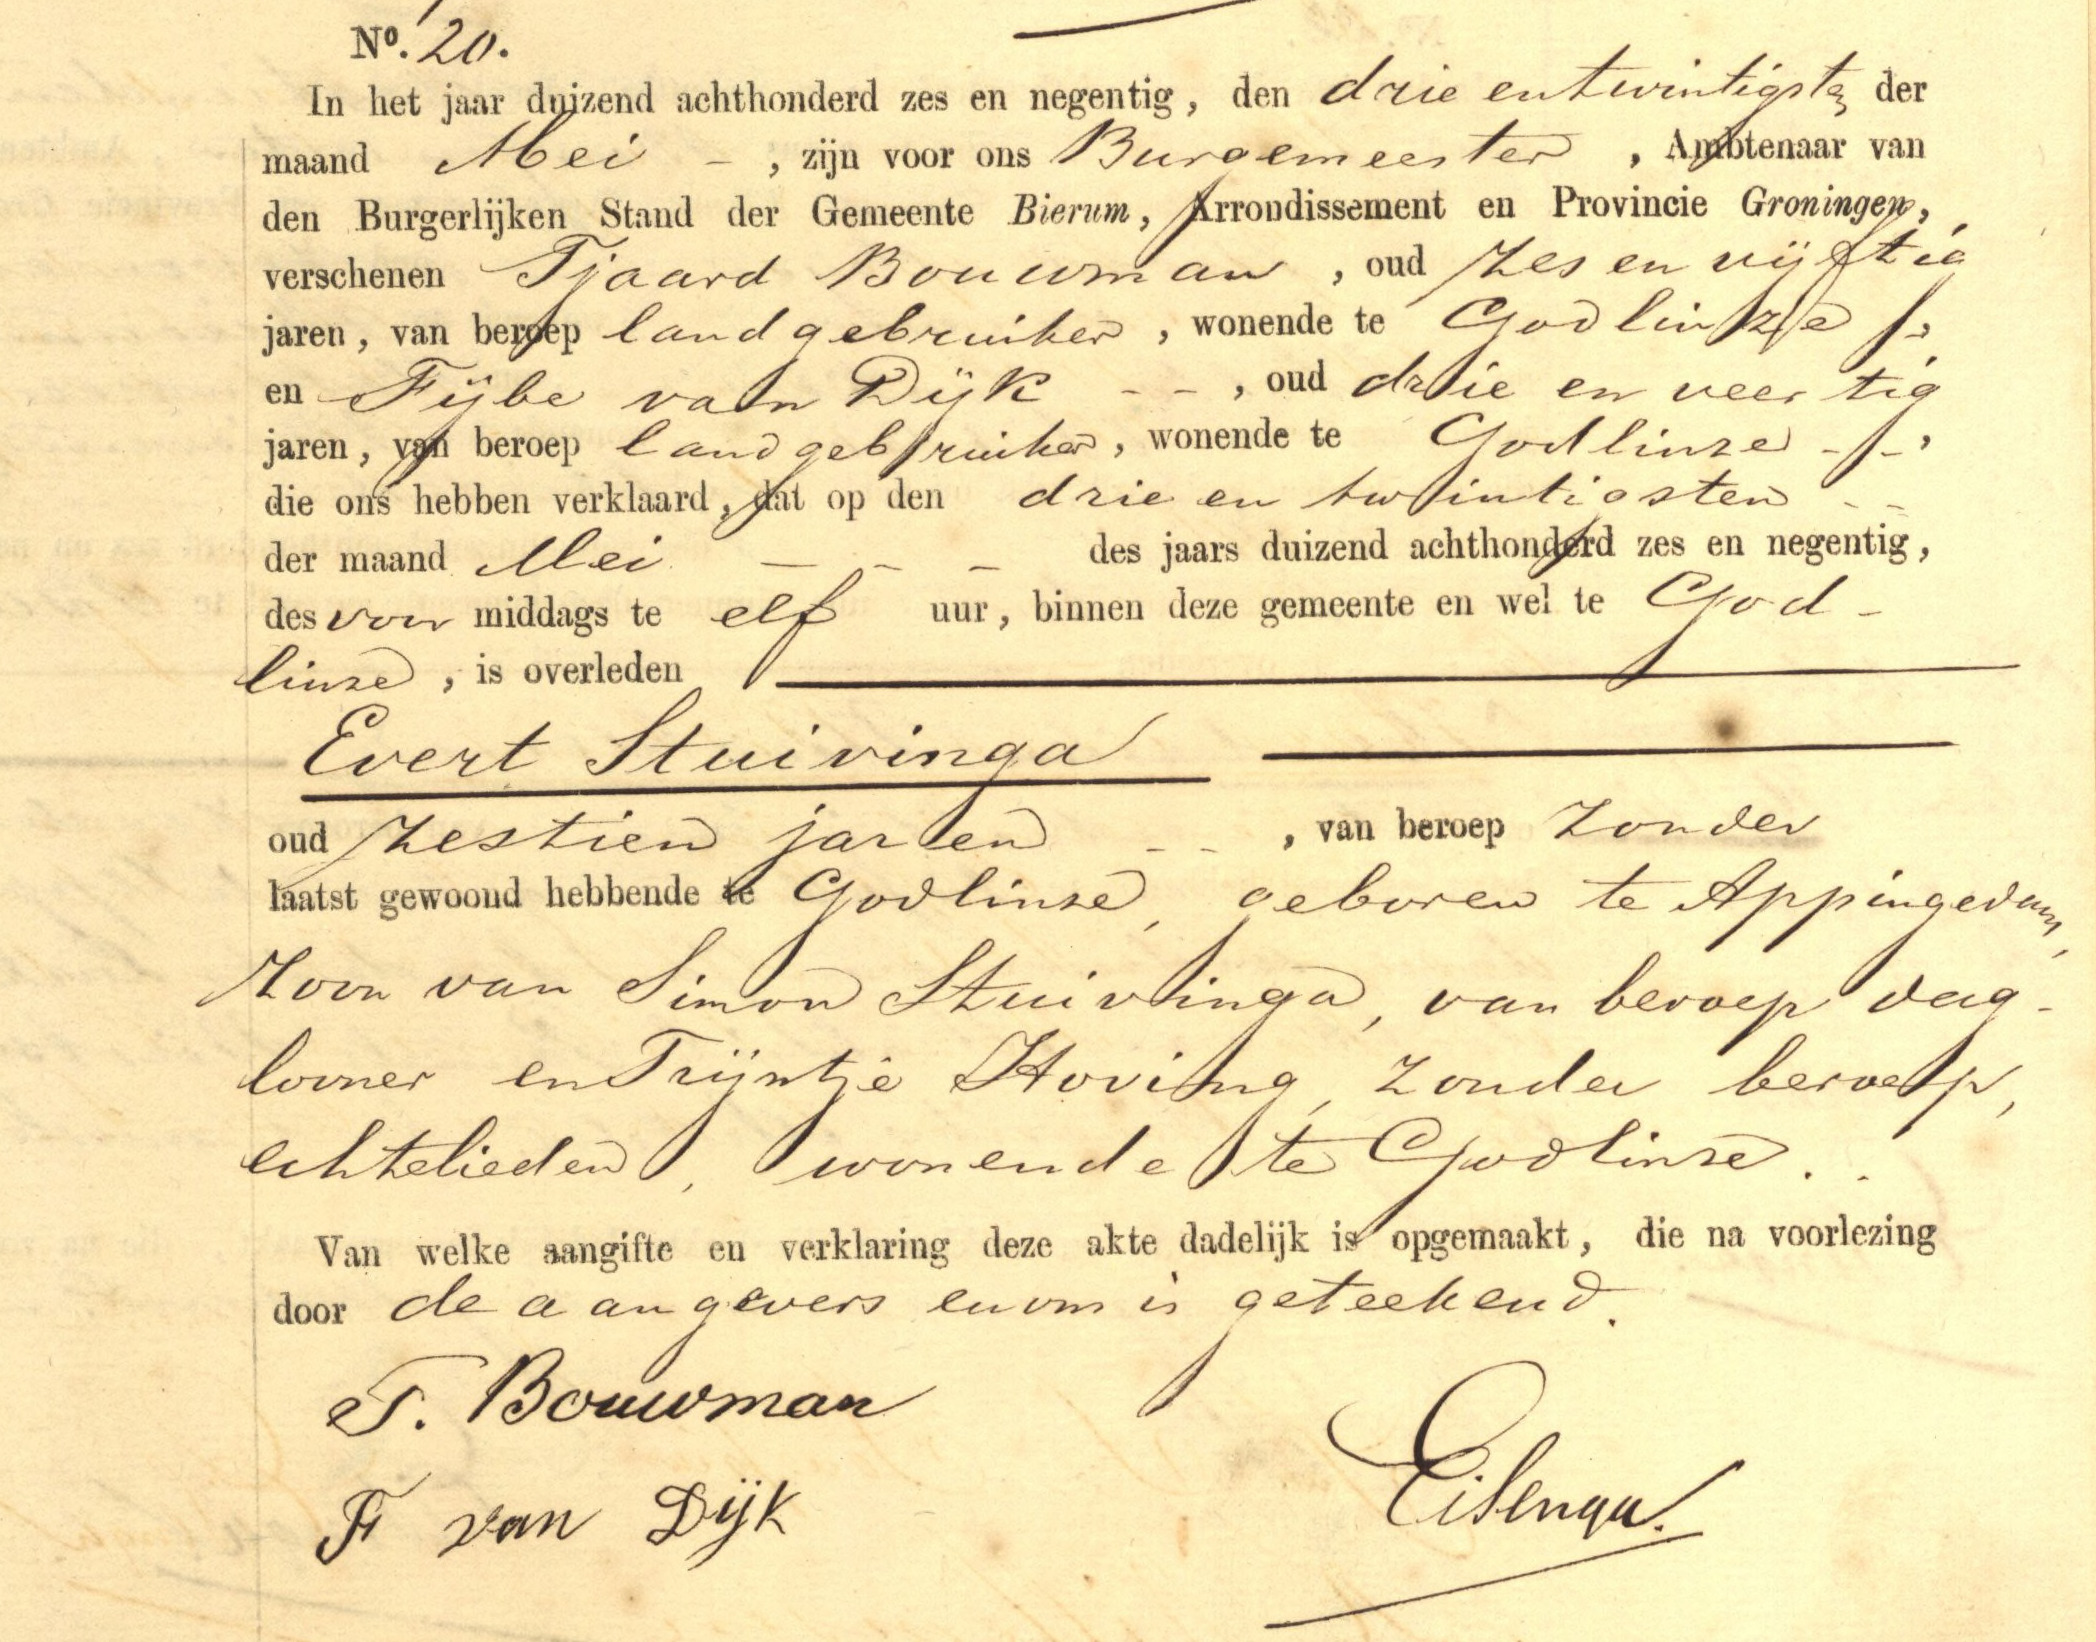 Nº. 20.
In het jaar duizend achthonderd zes en negentig, den drie en twintigsten der
maand Mei - , zijn voor ons Burgemeester , Ambtenaar van
den Burgerlijken Stand der Gemeente Bierum, Arrondissement en Provincie Groningen,
verschenen Tjaard Bouwman , oud zes en vijftig
jaren, van beroep landgebruiker , wonende te Godlinze
en Fijbe van Dijk - - , oud drie en veertig
jaren, van beroep landgebruiker , wonende te Godlinze - - ,
die ons hebben verklaard, dat op den drie en twintigsten - -
der maand Mei - - - des jaars duizend achthonderd zes en negentig,
des voor middags te elf uur, binnen deze gemeente en wel te God-
linze , is overleden
Evert Stuivinga
oud zestien jaren - - , van beroep zonder
laatst gewoond hebbende te Godlinze, geboren te Appingedam,
zoon van Simon Stuivinga, van beroep dag-
looner en Trijntje Hoving, zonder beroep,
echtelieden, wonende te Godlinze. .
Van welke aangifte en verklaring deze akte dadelijk is opgemaakt, die na voorlezing
door de aangevers en ons is geteekend.
T. Bouwman
F van Dijk
Eisenga.